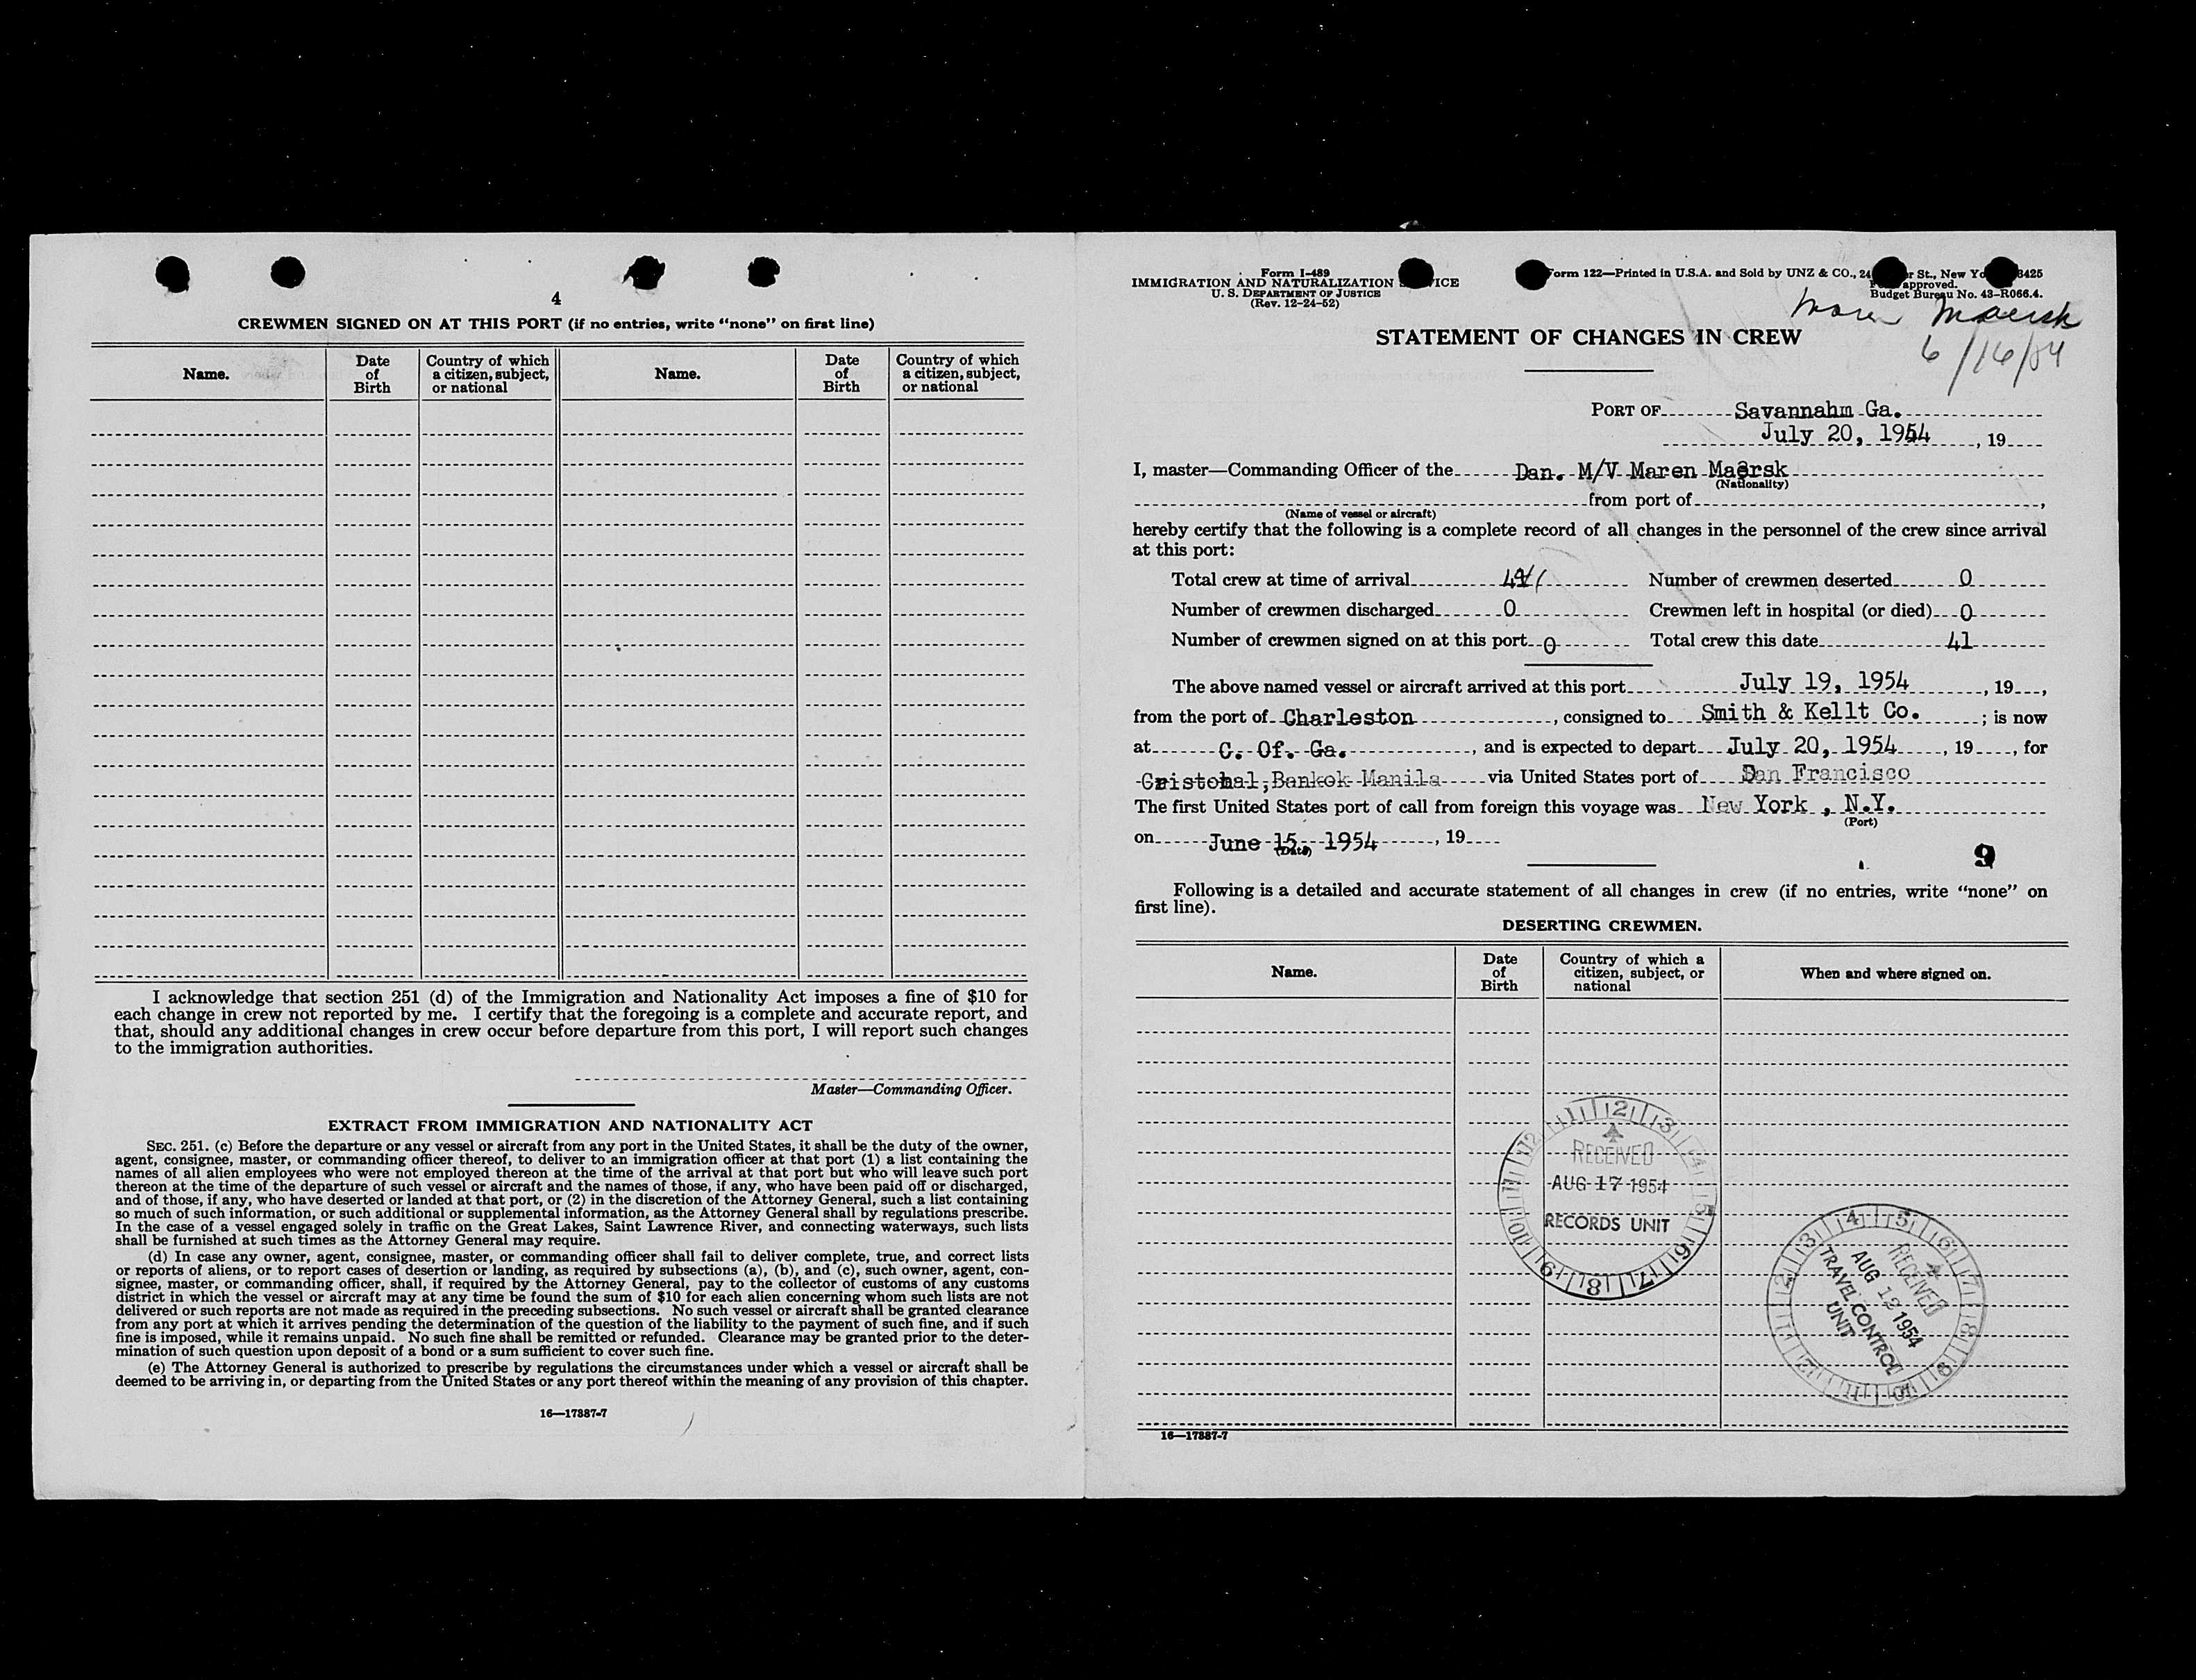 4
CREWMEN SIGNED ON AT THIS PORT (if no entries, write “none” on first line)
Name.
Date of Birth
Country of which a citizen, subject, or national
Name.
Date of Birth
Country of which a citizen, subject, or national
I acknowledge that section 251 (d) of the Immigration and Nationality Act imposes a fine of $10 for
each change in crew not reported by me. I certify that the foregoing is a complete and accurate report, and
that, should any additional changes in crew occur before departure from this port, I will report such changes
to the immigration authorities.
Master—Commanding Officer.
EXTRACT FROM IMMIGRATION AND NATIONALITY ACT
SEC. 251. (c) Before the departure or any vessel or aircraft from any port in the United States, it shall be the duty of the owner,
agent, consignee, master, or commanding officer thereof, to deliver to an immigration officer at that port (1) a list containing the
names of all alien employees who were not employed thereon at the time of the arrival at that port but who will leave such port
thereon at the time of the departure of such vessel or aircraft and the names of those, if any, who have been paid off or discharged,
and of those, if any, who have deserted or landed at that port, or (2) in the discretion of the Attorney General, such a list containing
so much of such information, or such additional or supplemental information, as the Attorney General shall by regulations prescribe.
In the case of a vessel engaged solely in traffic on the Great Lakes, Saint Lawrence River, and connecting waterways, such lists
shall be furnished at such times as the Attorney General may require.
(d) In case any owner, agent, consignee, master, or commanding officer shall fail to deliver complete, true, and correct lists
or reports of aliens, or to report cases of desertion or landing, as required by subsections (a), (b), and (c), such owner, agent, con-
signee, master, or commanding officer, shall, if required by the Attorney General, pay to the collector of customs of any customs
district in which the vessel or aircraft may at any time be found the sum of $10 for each alien concerning whom such lists are not
delivered or such reports are not made as required in the preceding subsections. No such vessel or aircraft shall be granted clearance
from any port at which it arrives pending the determination of the question of the liability to the payment of such fine, and if such
fine is imposed, while it remains unpaid. No such fine shall be remitted or refunded. Clearance may be granted prior to the deter-
mination of such question upon deposit of a bond or a sum sufficient to cover such fine.
(e) The Attorney General is authorized to prescribe by regulations the circumstances under which a vessel or aircraft shall be
deemed to be arriving in, or departing from the United States or any port thereof within the meaning of any provision of this chapter.
16—17887-7
Form I-489
IMMIGRATION AND NATURALIZATION
U. S. DEPARTMENT OF JUSTICE
(Rev. 12-24-52)
Form 122—Printed in U.S.A. and Sold by UNZ & CO., 24 St., New Yo 8425
approved.
Budget Bureau No. 43-R066.4.
Maren Maersk
6/16/54
STATEMENT OF CHANGES IN CREW
PORT OF Savannahm Ga.
July 20, 1954, 19
I, master—Commanding Officer of the Dan. M/V Maren Maersk
(Nationality)
from port of ,
(Name of vessel or aircraft)
hereby certify that the following is a complete record of all changes in the personnel of the crew since arrival
at this port:
Total crew at time of arrival 41 Number of crewmen deserted 0
Number of crewmen discharged 0 Crewmen left in hospital (or died) 0
Number of crewmen signed on at this port 0 Total crew this date 41
The above named vessel or aircraft arrived at this port July 19, 1954, 19 ,
from the port of Charleston , consigned to Smith & Kellt Co. ; is now
at C. Of. Ga. , and is expected to depart July 20, 1954 , 19 , for
Cristobal, Bankok Manila via United States port of San Francisco
The first United States port of call from foreign this voyage was New York , N.Y.
(Port)
on June 15, 1954 , 19
(Date)
9
Following is a detailed and accurate statement of all changes in crew (if no entries, write “none” on
first line).
DESERTING CREWMEN.
Name.
Date of Birth
Country of which a citizen, subject, or national
When and where signed on.
RECEIVED
AUG 17 1954
RECORDS UNIT
RECEIVED
AUG 12 1954
TRAVEL CONTROL
UNIT
16—17887-7